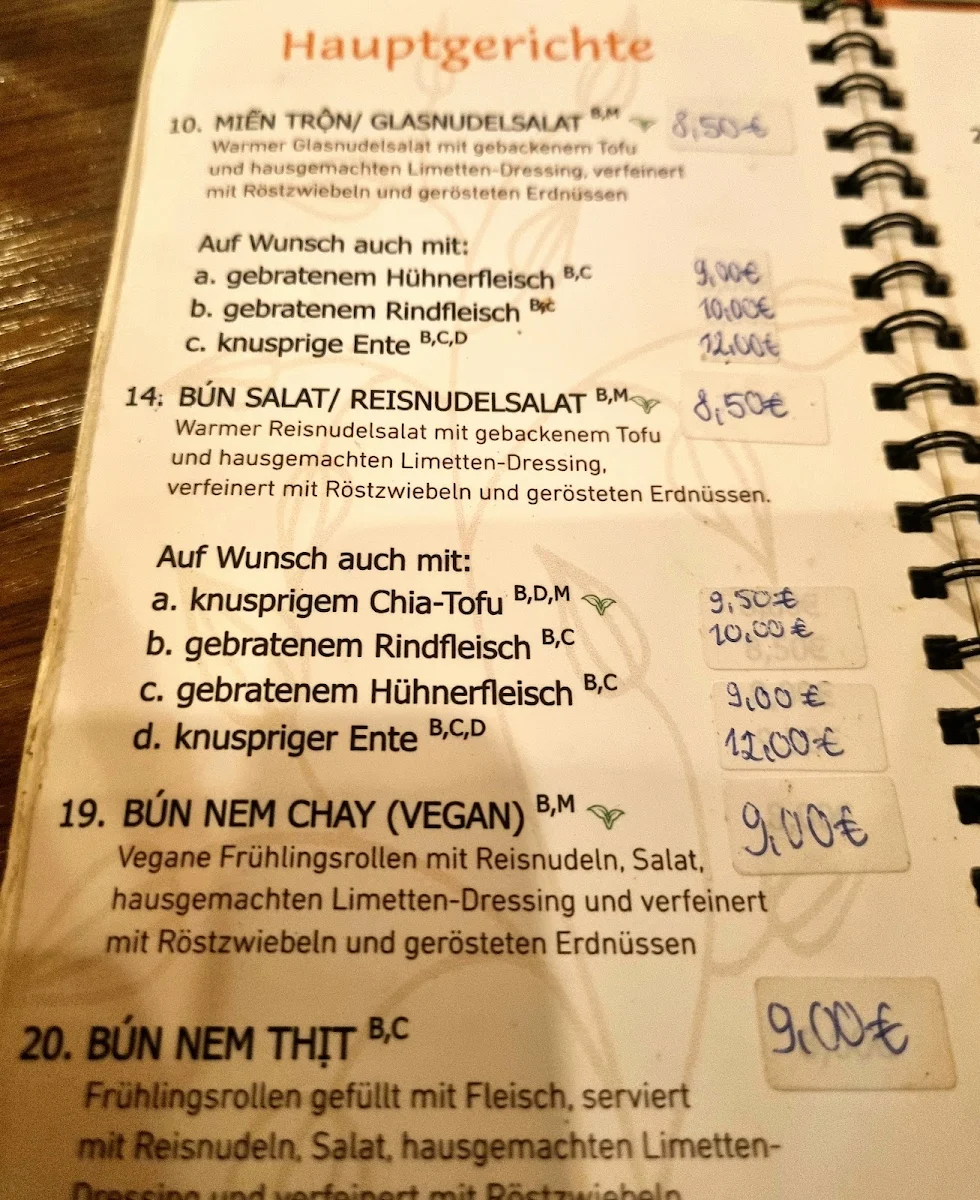 Hauptgerichte
10. MIẾN TRỘN/ GLASNUDELSALAT B,M 8,50€
Warmer Glasnudelsalat mit gebackenem Tofu
und hausgemachten Limetten-Dressing, verfeinert
mit Röstzwiebeln und gerösteten Erdnüssen
Auf Wunsch auch mit:
a. gebratenem Hühnerfleisch B,C 9,00€
b. gebratenem Rindfleisch B,C 10,00€
c. knusprige Ente B,C,D 12,00€
14. BÚN SALAT/ REISNUDELSALAT B,M 8,50€
Warmer Reisnudelsalat mit gebackenem Tofu
und hausgemachten Limetten-Dressing,
verfeinert mit Röstzwiebeln und gerösteten Erdnüssen.
Auf Wunsch auch mit:
a. knusprigem Chia-Tofu B,D,M 9,50€
b. gebratenem Rindfleisch B,C 10,00€
c. gebratenem Hühnerfleisch B,C 9,00€
d. knuspriger Ente B,C,D 12,00€
19. BÚN NEM CHAY (VEGAN) B,M 9,00€
Vegane Frühlingsrollen mit Reisnudeln, Salat,
hausgemachten Limetten-Dressing und verfeinert
mit Röstzwiebeln und gerösteten Erdnüssen
20. BÚN NEM THỊT B,C 9,00€
Frühlingsrollen gefüllt mit Fleisch, serviert
mit Reisnudeln, Salat, hausgemachten Limetten-
Dressing und verfeinert mit Röstzwiebeln